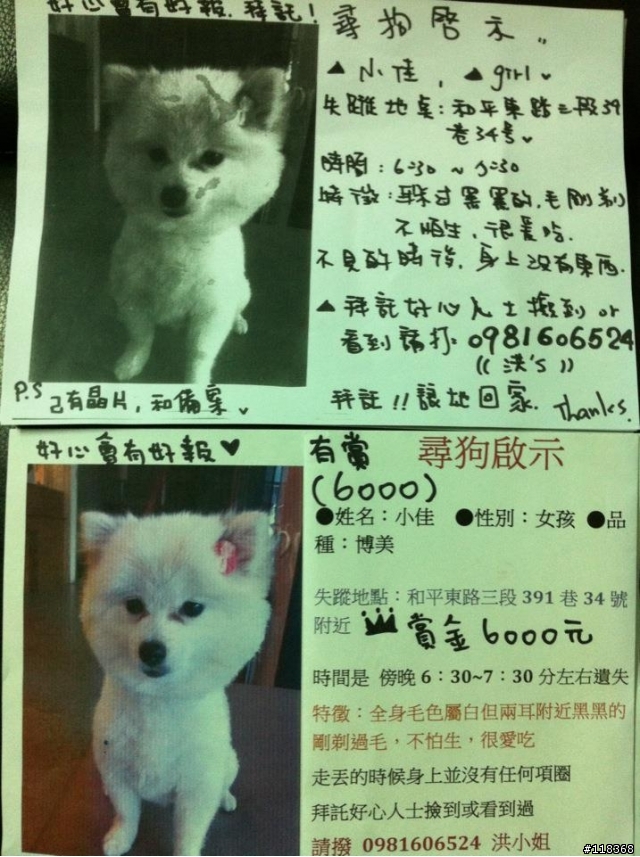 好心會有好報.拜託!
尋狗啓示..
▲小佳，▲girl♥
失蹤地点:和平東路三段39
巷34号
時間:6:30~
不怕生,很愛吃.
不見的時後,身上沒有東西.
▲拜託好心人士撿到or
看到請打:0981606524
((洪's))
P.S 己有晶片,和備案
拜託!!讓她回家.Thanks.
好心會有好報♥
有賞
(6000)
尋狗啟示
●姓名：小佳 ●性別：女孩 ●品
種：博美
失蹤地點：和平東路三段391巷34號
附近 賞金6000元
時間是 傍晚6：30~7：30分左右遺失
特徵：全身毛色屬白但兩耳附近黑黑的
剛剃過毛，不怕生，很愛吃
走丟的時候身上並沒有任何項圈
拜託好心人士撿到或看到過
請撥 0981606524 洪小姐
#118368